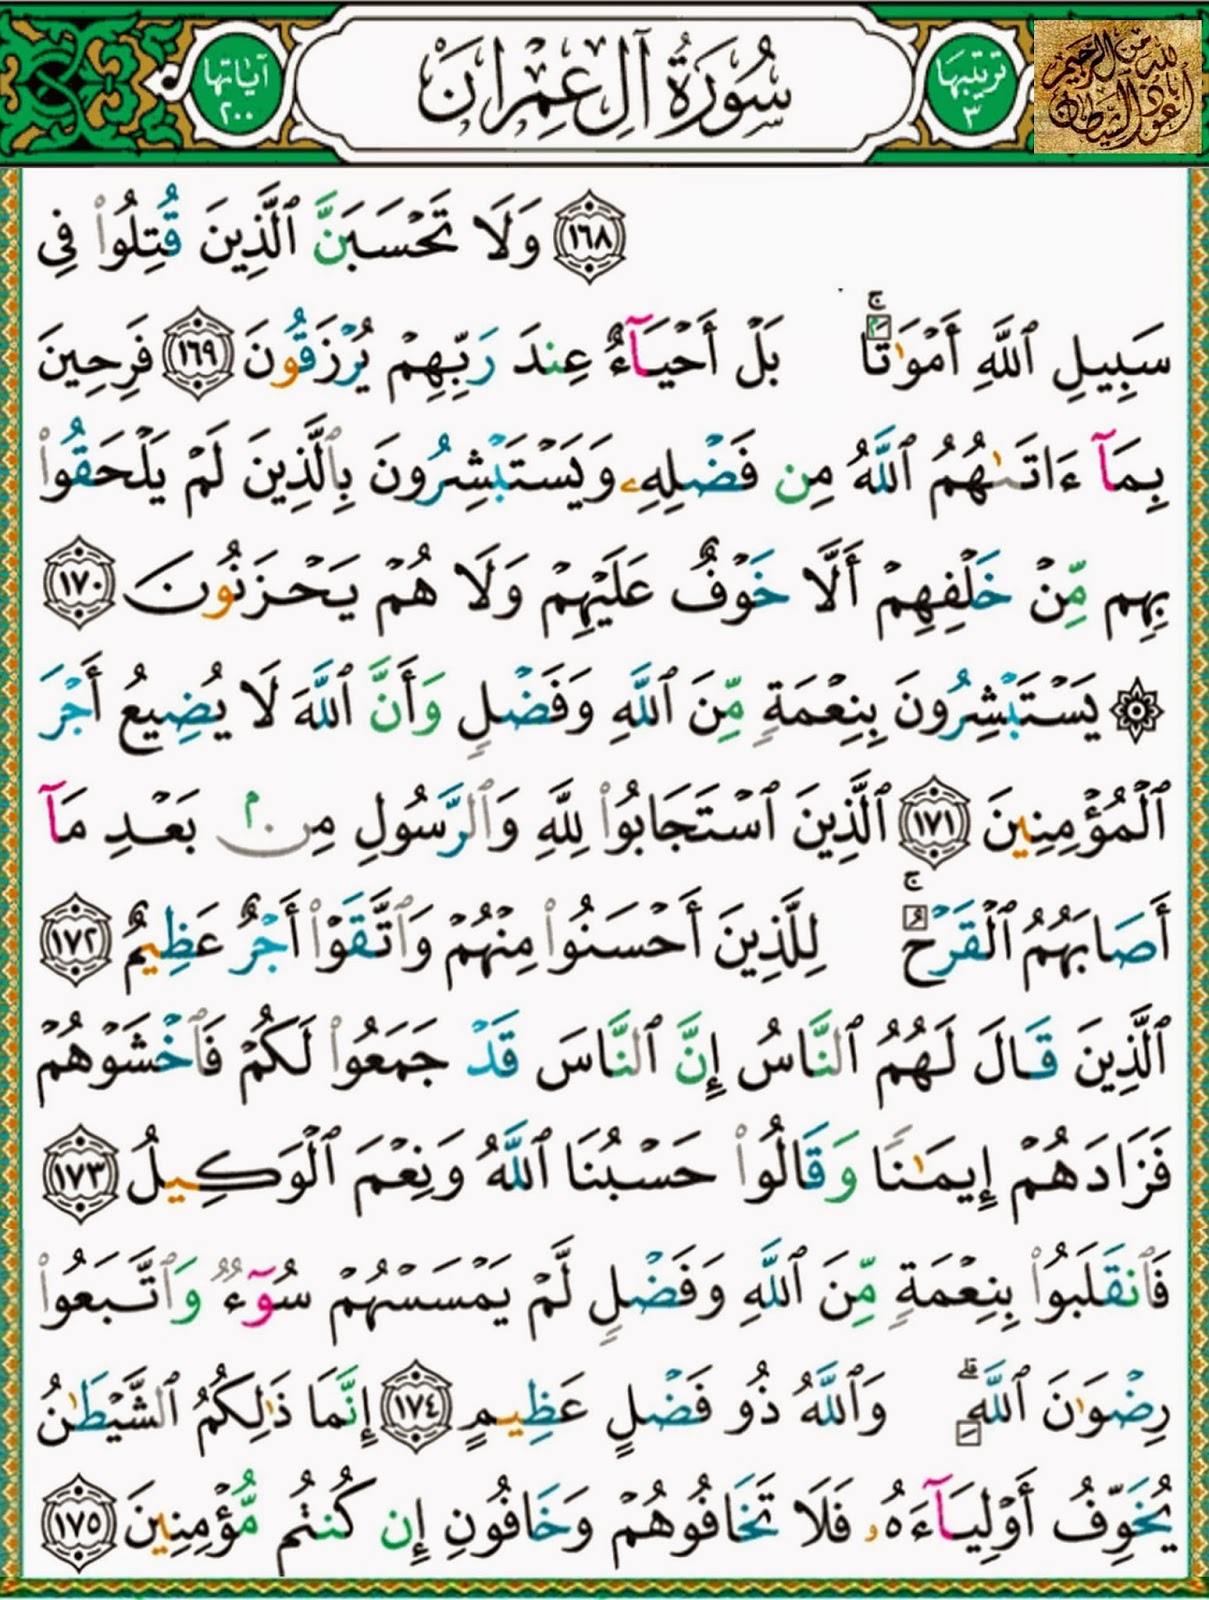 ترتيبها ٣
سُورَةُ آلِ عِمْرَانَ
آيَاتها ٢٠٠
أعوذ بالله من الشيطان الرجيم
﴿١٦٨﴾ وَلَا تَحْسَبَنَّ ٱلَّذِينَ قُتِلُوا۟ فِى
سَبِيلِ ٱللَّهِ أَمْوَٰتًۢا ۚ بَلْ أَحْيَآءٌ عِندَ رَبِّهِمْ يُرْزَقُونَ ﴿١٦٩﴾ فَرِحِينَ
بِمَآ ءَاتَىٰهُمُ ٱللَّهُ مِن فَضْلِهِۦ وَيَسْتَبْشِرُونَ بِٱلَّذِينَ لَمْ يَلْحَقُوا۟
بِهِم مِّنْ خَلْفِهِمْ أَلَّا خَوْفٌ عَلَيْهِمْ وَلَا هُمْ يَحْزَنُونَ ﴿١٧٠﴾
۞ يَسْتَبْشِرُونَ بِنِعْمَةٍ مِّنَ ٱللَّهِ وَفَضْلٍ وَأَنَّ ٱللَّهَ لَا يُضِيعُ أَجْرَ
ٱلْمُؤْمِنِينَ ﴿١٧١﴾ ٱلَّذِينَ ٱسْتَجَابُوا۟ لِلَّهِ وَٱلرَّسُولِ مِنۢ بَعْدِ مَآ
أَصَابَهُمُ ٱلْقَرْحُ ۚ لِلَّذِينَ أَحْسَنُوا۟ مِنْهُمْ وَٱتَّقَوْا۟ أَجْرٌ عَظِيمٌ ﴿١٧٢﴾
ٱلَّذِينَ قَالَ لَهُمُ ٱلنَّاسُ إِنَّ ٱلنَّاسَ قَدْ جَمَعُوا۟ لَكُمْ فَٱخْشَوْهُمْ
فَزَادَهُمْ إِيمَٰنًا وَقَالُوا۟ حَسْبُنَا ٱللَّهُ وَنِعْمَ ٱلْوَكِيلُ ﴿١٧٣﴾
فَٱنقَلَبُوا۟ بِنِعْمَةٍ مِّنَ ٱللَّهِ وَفَضْلٍ لَّمْ يَمْسَسْهُمْ سُوٓءٌ وَٱتَّبَعُوا۟
رِضْوَٰنَ ٱللَّهِ ۗ وَٱللَّهُ ذُو فَضْلٍ عَظِيمٍ ﴿١٧٤﴾ إِنَّمَا ذَٰلِكُمُ ٱلشَّيْطَٰنُ
يُخَوِّفُ أَوْلِيَآءَهُۥ فَلَا تَخَافُوهُمْ وَخَافُونِ إِن كُنتُم مُّؤْمِنِينَ ﴿١٧٥﴾